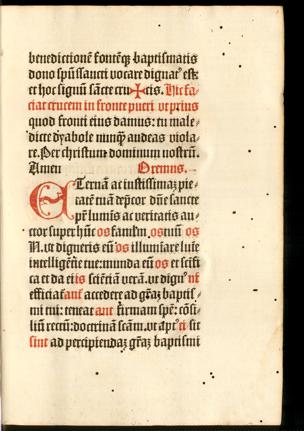 benedictionē fontēq; baptismatis
dono spūssancti vocare dignat᷒ est:
et hoc signū sācte cru✠cis. Hic fa⸗
ciat crucem in fronte pueri ut prius
quod fronti eius damus: tu male⸗
dicte dyabole nunq̄ audeas viola⸗
re. Per christum dominum nostrū.
Amen Oremus.
ETernā ac iustissimaʒ pie⸗
tatē tuā dep̄cor dn̄e sancte
pr̄ lumīs ac veritatis au⸗
ctor super hūc os famlm̄. os tuū os
N. ut digneris eū os illumīare luīe
intelligētie tue: munda eū os et scifi
ca et da ei is sciētiā verā. ut dign᷒ nt
efficiat ant accedere ad gr̄aʒ baptis⸗
mi tui: teneat ant firmam spē: cōsi⸗
liū rectū: doctrinā scām. ut apt᷒ ti sit
sint ad percipiendaʒ gr̄aʒ baptismi